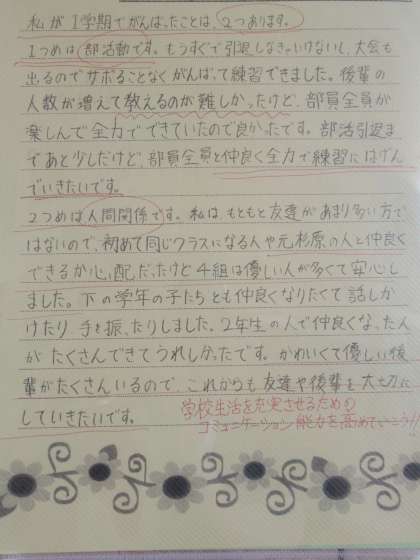 私が1学期でがんばったことは、2つあります。
1つめは部活動です。もうすぐで引退しなきゃいけないし、大会も
出るのでサボることなくがんばって練習できました。後輩の
人数が増えて教えるのが難しかったけど、部員全員が
楽しんで全力でできていたので良かったです。部活引退ま
であと少しだけど、部員全員と仲良く全力で練習にはげん
でいきたいです。
2つめは人間関係です。私はもともと友達があまり多い方で
はないので、初めて同じクラスになる人や元杉原の人と仲良く
できるか心配だったけど4組は優しい人が多くて安心し
ました。下の学年の子たちとも仲良くなりたくて話しか
けたり手を振ったりしました。2年生の人で仲良くなった人
がたくさんできてうれしかったです。かわいくて優しい後
輩がたくさんいるので、これからも友達や後輩を大切に
していきたいです。
学校生活を充実させるための
コミュニケーション能力を高めていこう!!